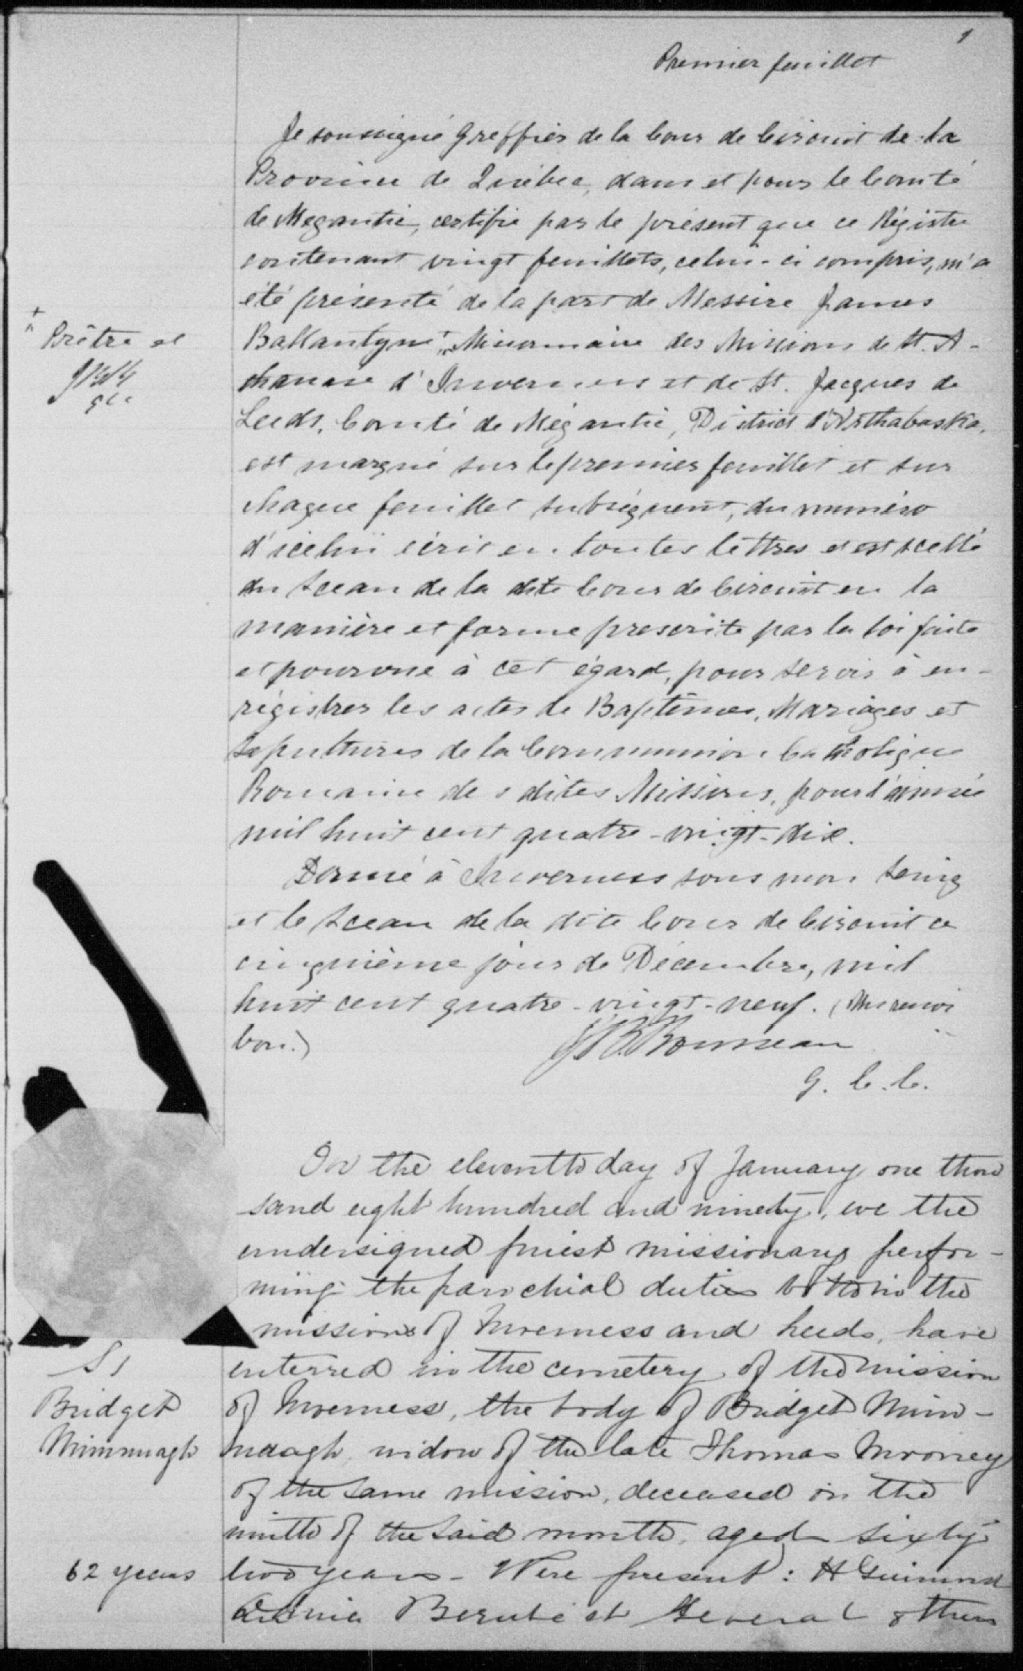 1
Premier feuillet
Je soussigné Greffier de la Cour de Circuit de la
Province de Québec, dans et pour le Comté
de Megantic, certifie par le présent que ce Régistre
contenant vingt feuillets, celui-ci compris, m'a
été présenté de la part de Messire James
Ballantyne + Missionnaire des Missions de St. A-
thanase d'Inverness et de St. Jacques de
Leeds, Comté de Mégantic, District d'Arthabaska,
est marqué sur le premier feuillet et sur
chaque feuillet subséquent, du numéro
d'icelui écrit en toutes lettres et est scellé
du Sceau de la dite Cour de Circuit en la
manière et forme prescrite par la loi faite
et pourvue à cet égard, pour servir à en-
régistrer les actes de Baptêmes, Mariages et
Sépultures de la Communion Catholique
Romaine des dites Missions, pour l'année
mil huit cent quatre-vingt-dix.
Donné à Inverness sous mon Seing
et le Sceau de la dite Cour de Circuit ce
cinquième jour de Décembre, mil
huit cent quatre-vingt-neuf. (Un renvoi
bon.)
G. C. C.
+ Prêtre et
On the eleventh day of January one thou
sand eight hundred and ninety, we the
undersigned priest missionary perfor-
ming the parochial duties both in the
missions of Inverness and Leeds, have
interred in the cemetery of the mission
of Inverness, the body of Bridget Mim-
naugh, widow of the late Thomas Mooney
of the same mission, deceased on the
ninth of the said month, aged sixty
two years - Were present: H Guimond
Bérubé et several others
S1
Bridget
Mimnuagh
62 years